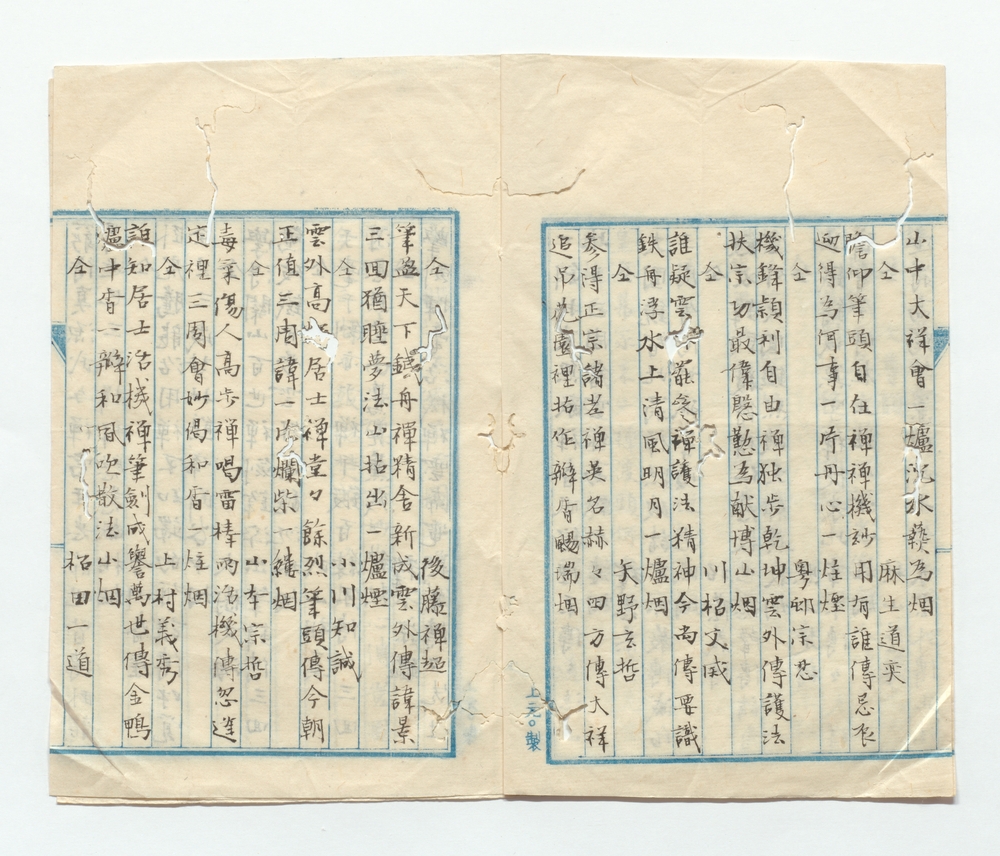 山中大祥會一爐沉水藝為烟
仝 麻生道奕
瞻仰筆頭自在禅禅機妙用有誰傳忌辰
迎得為何事一片丹心一炷煙
仝 粤邨宗忍
機鋒頴利自由禅独歩乾坤雲外傳護法
扶宗功最偉慇懃為献博山烟
仝 川招文威
誰疑雲 荘 禅護法精神今尚傳要識
鉄舟浮水上清風明月一爐烟
仝 矢野玄哲
参得正宗諸老禅英名赫々四方傳大祥
追吊花園裡拈作瓣香賜瑞烟
上元〇製
仝 後藤禅超
筆盖天下鐵舟禅精舎新成雲外傳諱景
三回猶瞳夢法山拈出一爐煙
仝 小川知誠
雲外高 居士禅堂々餘烈筆頭傳今朝
正值三周諱 爛柴一縷烟
仝 山本宗哲
毒氣傷人高歩禅喝雷棒雨活機傳忽逢
這裡三周會妙偈和香 炷烟
仝 上村義秀
誰知居士活機禅筆劍成響萬世傳金鴨
爐中香一瓣和風吹散法山烟
仝 招田一道